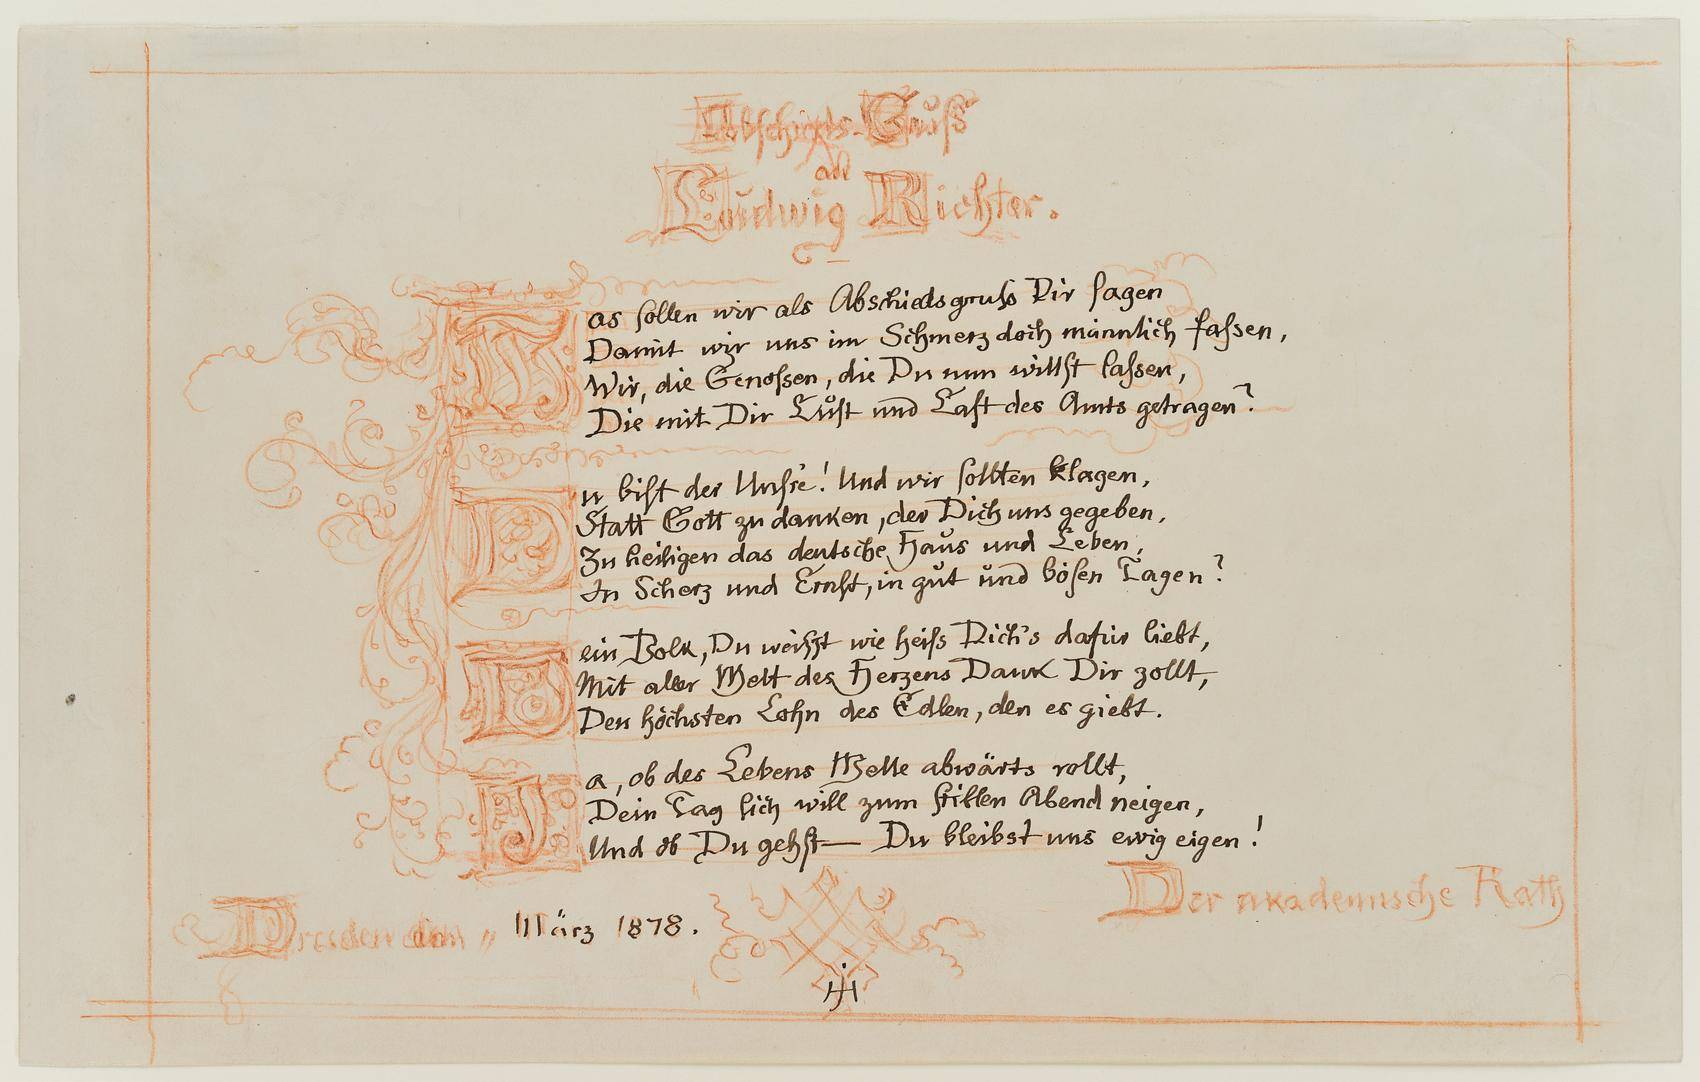 Abschieds-Gruß
an
Ludwig Richter.
Was sollen wir als Abschiedsgruß Dir sagen
Damit wir uns im Schmerz doch männlich fassen,
Wir, die Genossen, die Du nun willst lassen,
Die mit Dir Lust und Last des Amts getragen?
Du bist der Unsre! Und wir sollten klagen,
Statt Gott zu danken, der Dich uns gegeben,
Zu heiligen das deutsche Haus und Leben,
In Scherz und Ernst, in gut und bösen Tagen?
Dein Volk, Du weißt wie heiß Dich's dafür liebt,
Mit aller Welt des Herzens Dank Dir zollt,
Den höchsten Lohn des Edlen, den es giebt.
Ja, ob des Lebens Welle abwärts rollt,
Dein Tag sich will zum stillen Abend neigen,
Und ob Du gehst — Du bleibst uns ewig eigen!
Der akademische Rath
Dresden den " März 1878.